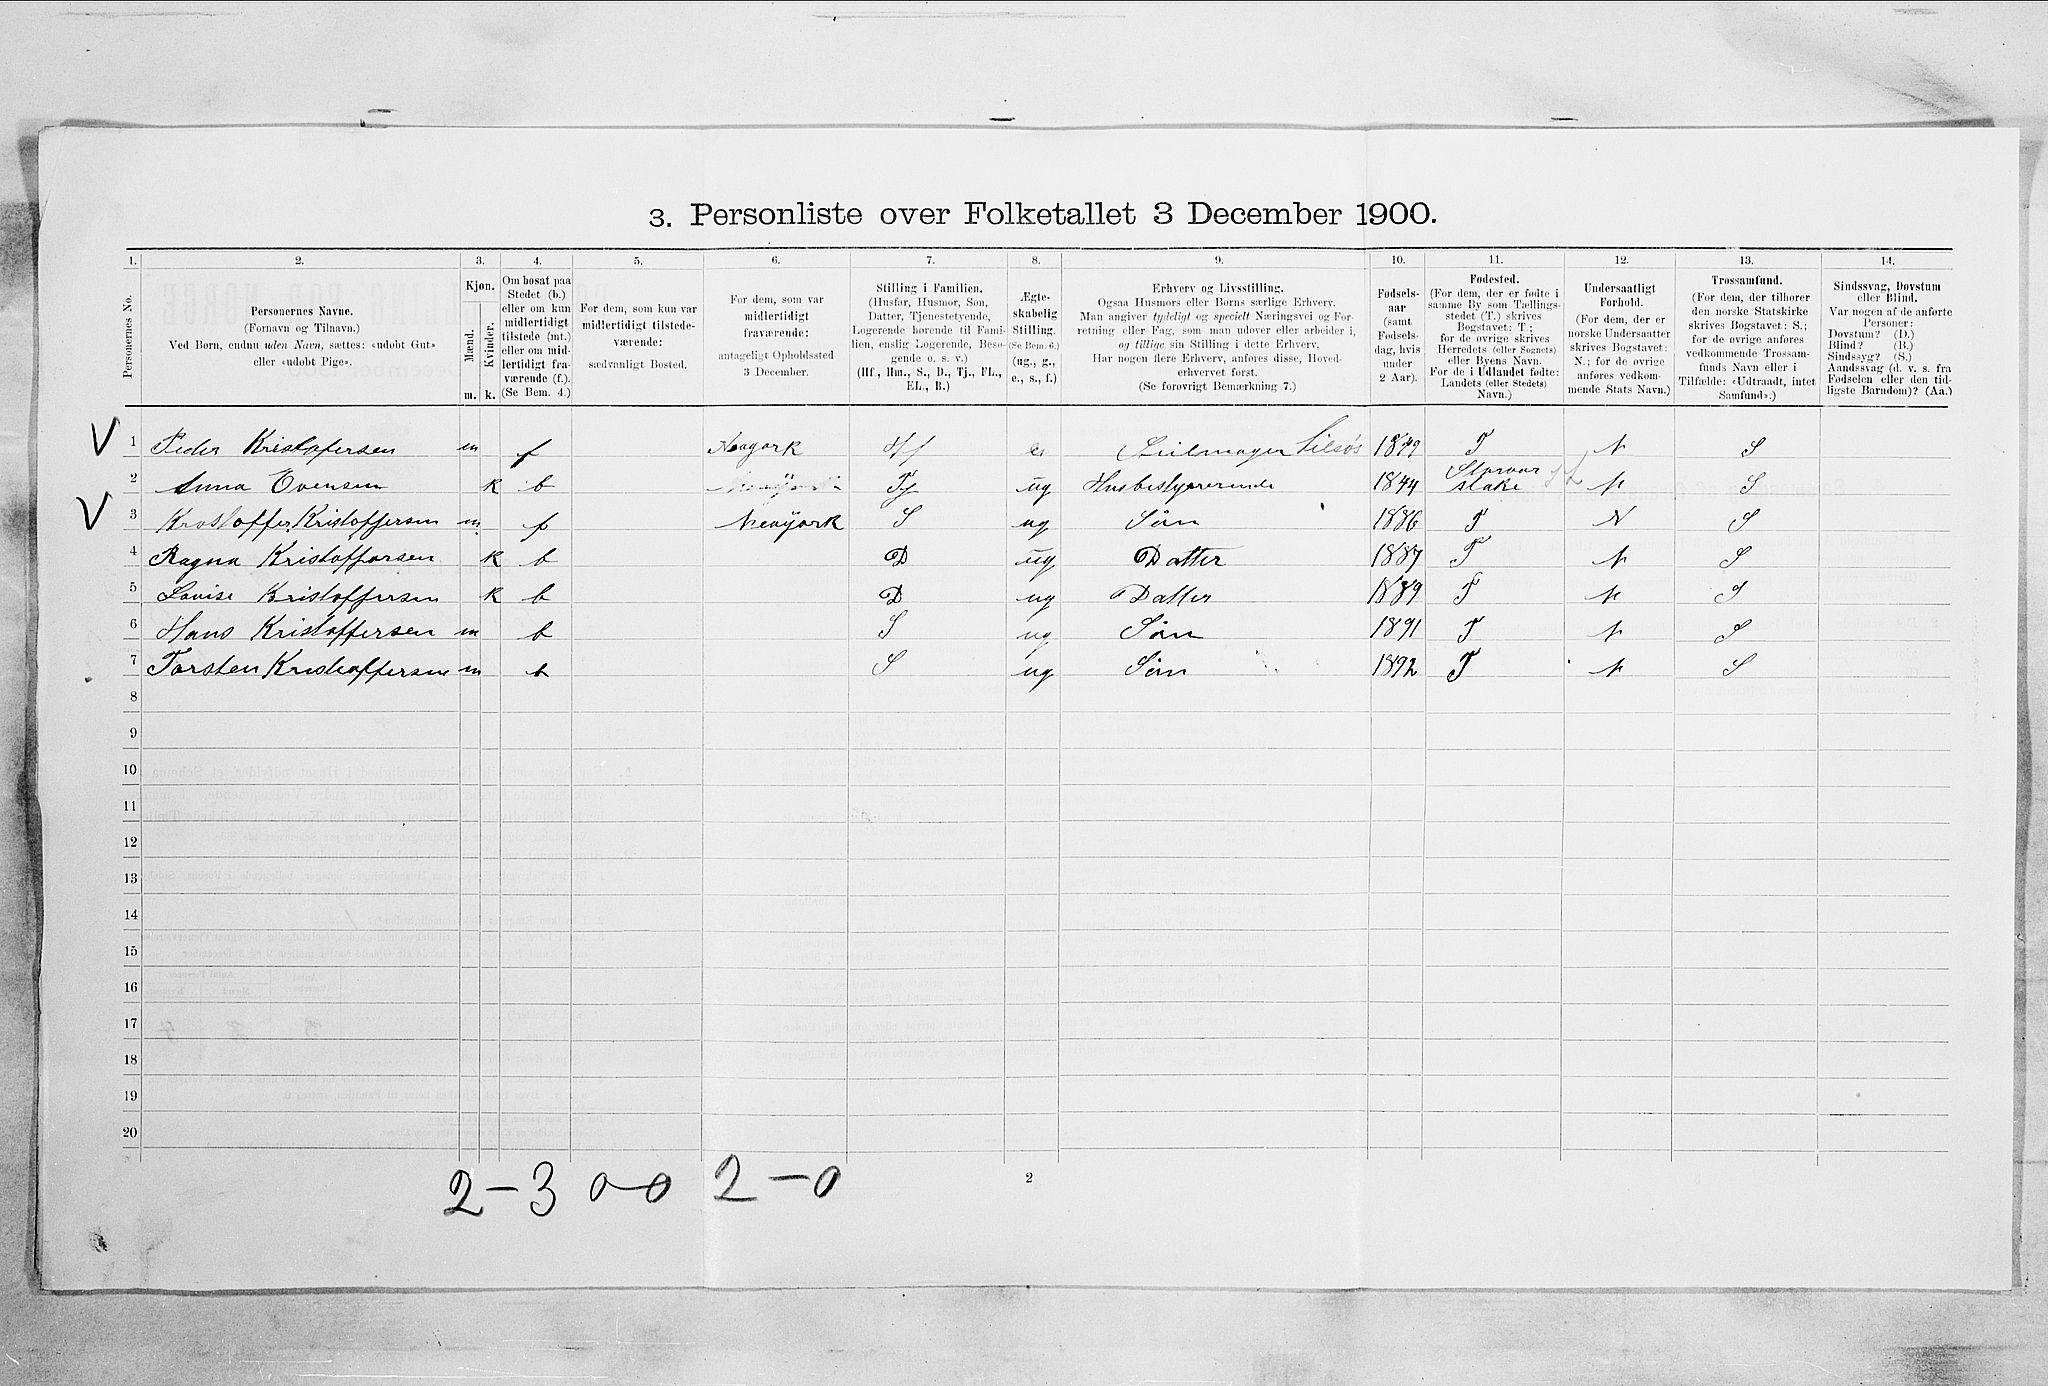 3. Personliste over Folketallet 3 December 1900.
1. 2. 3. 4. 5. 6. 7. 8. 9. 10. 11. 12. 13. 14.
Personernes No.
Personernes Navne.
(Fornavn og Tilnavn.)
Ved Børn, endnu uden Navn, sættes: «udøbt Gut»
eller «udøbt Pige».
Kjøn.
Mænd.
Kvinder.
m. k.
Om bosat paa
Stedet (b.)
eller om kun
midlertidigt
tilstede (mt.)
eller om mid-
lertidigt fra-
værende (f.).
(Se Bem. 4.)
For dem, som kun var
midlertidigt tilstede-
værende:
sædvanligt Bosted.
For dem, som var
midlertidigt
fraværende:
antageligt Opholdssted
3 December.
Stilling i Familien.
(Husfar, Husmor, Søn,
Datter, Tjenestetyende,
Logerende hørende til Fami-
lien, enslig Logerende, Besø-
gende o. s. v.)
(Hf., Hm., S., D., Tj., FL.,
EL., B.)
Ægte-
skabelig
Stilling.
(Se Bem. 6.)
(ug., g.,
e., s., f.)
Erhverv og Livsstilling.
Ogsaa Husmors eller Børns særlige Erhverv.
Man angiver tydeligt og specielt Næringsvei og For-
retning eller Fag, som man udover eller arbeider i,
og tillige sin Stilling i dette Erhverv.
Har nogen flere Erhverv, anføres disse, Hoved-
erhvervet først.
(Se forøvrigt Bemærkning 7.)
Fødsels-
aar
(samt
Fødsels-
dag, hvis
under
2 Aar).
Fødested.
(For dem, der er fødte i
samme By som Tællings-
stedet (T.) skrives
Bogstavet: T.;
for de øvrige skrives
Herredets (eller Sognets)
eller Byens Navn.
For de i Udlandet fødte:
Landets (eller Stedets)
Navn.)
Undersaatligt
Forhold.
(For dem, der er
norske Undersaatter
skrives Bogstavet:
N.; for de øvrige
anføres vedkom-
mende Stats Navn.)
Trossamfund.
(For dem, der tilhører
den norske Statskirke
skrives Bogstavet: S.;
for de øvrige anføres
vedkommende Trossam-
funds Navn eller i
Tilfælde: «Udtraadt, intet
Samfund».)
Sindssvag, Døvstum
eller Blind.
Var nogen af de anførte
Personer:
Døvstum? (D.)
Blind? (B.)
Sindssyg? (S.)
Aandssvag (d. v. s. fra
Fødselen eller den tid-
ligste Barndom)? (Aa.)
V 1 Peder Kristofersen m f Newyork Hf e Seilmager Tilsøs 1849 T N S
2 Anna Evensen k b Tj ug Husbestyrerende 1844 N S
V 3 Kristoffer Kristoffersen m f Newyork S ug Søn 1886 T N S
4 Ragna Kristoffersen k b D ug Datter 1887 T N S
5 Lovise Kristoffersen k b D ug Datter 1889 T N S
6 Hans Kristoffersen m b S ug Søn 1891 T N S
7 Torsten Kristoffersen m b S ug Søn 1892 T N S
8
9
10
11
12
13
14
15
16
17
18
19
20
2-3 0-0 2-0
2